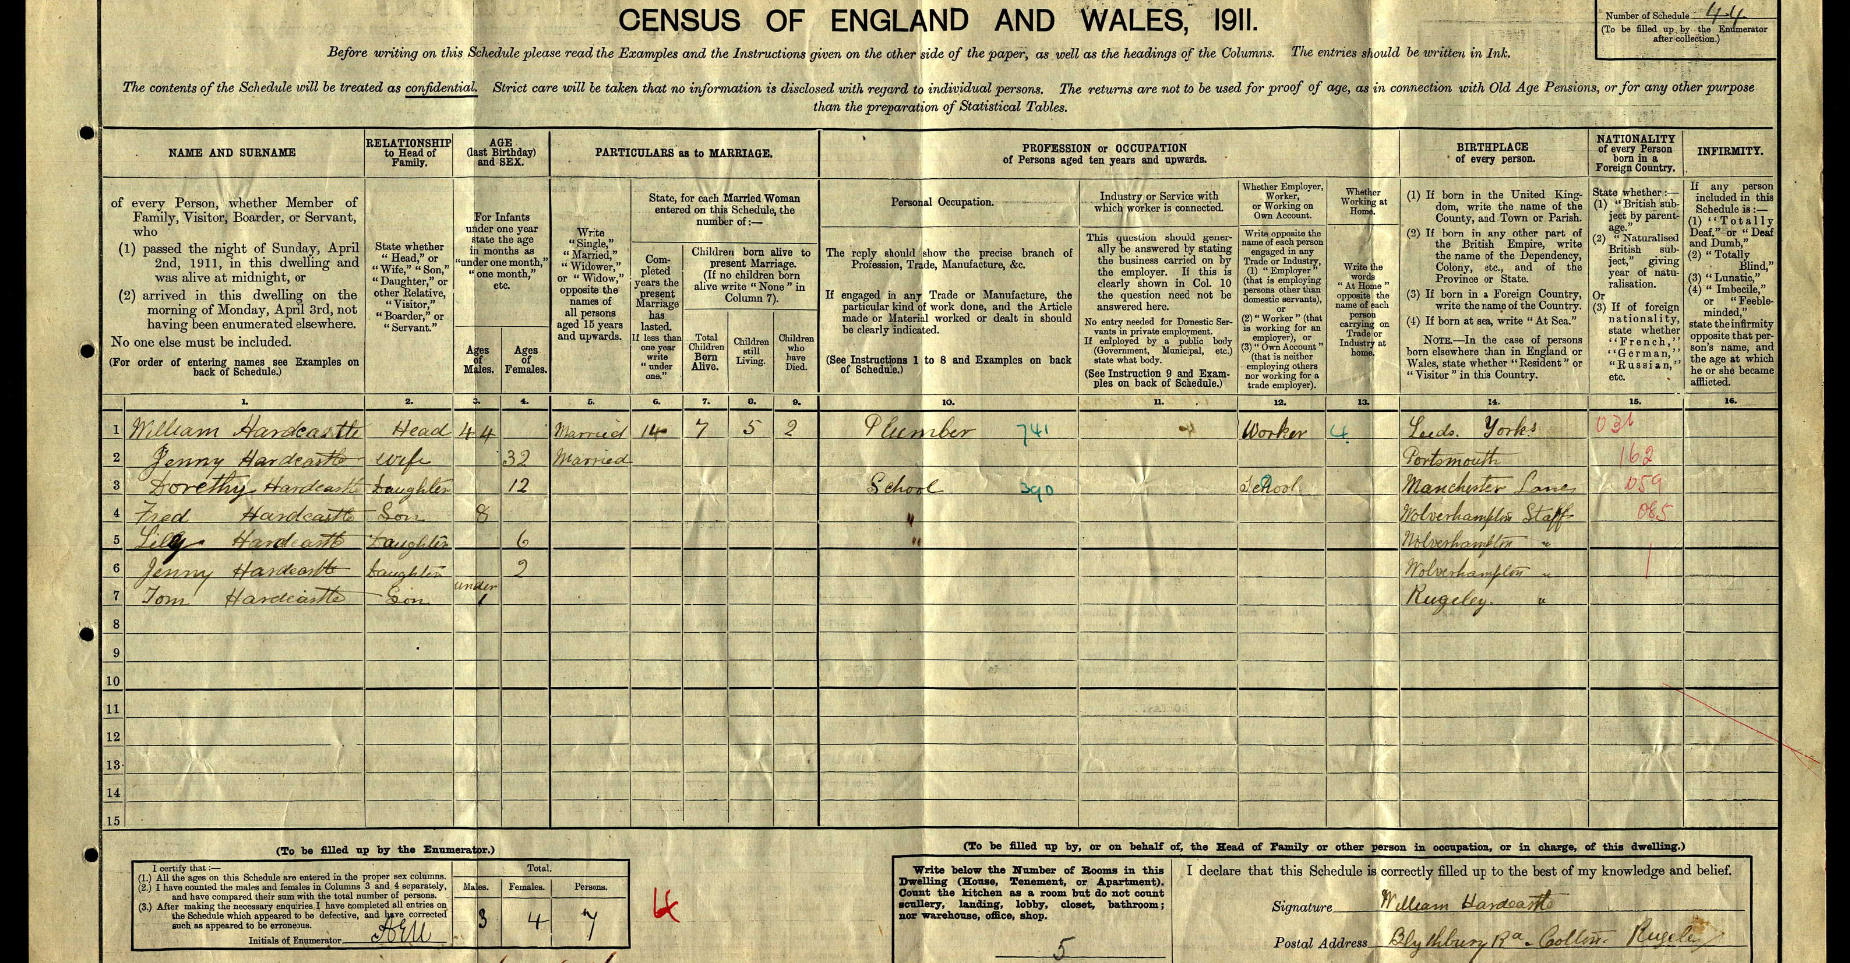 CENSUS OF ENGLAND AND WALES, 1911.
Number of Schedule 44
(To be filled up by the Enumerator
after collection.)
Before writing on this Schedule please read the Examples and the Instructions given on the other side of the paper, as well as the headings of the Columns. The entries should be written in Ink.
The contents of the Schedule will be treated as confidential. Strict care will be taken that no information is disclosed with regard to individual persons. The returns are not to be used for proof of age, as in connection with Old Age Pensions, or for any other purpose
than the preparation of Statistical Tables.
NAME AND SURNAME
of every Person, whether Member of
Family, Visitor, Boarder, or Servant,
who
(1) passed the night of Sunday, April
2nd, 1911, in this dwelling and
was alive at midnight, or
(2) arrived in this dwelling on the
morning of Monday, April 3rd, not
having been enumerated elsewhere.
No one else must be included.
(For order of entering names see Examples on
back of Schedule.)
RELATIONSHIP
to Head of
Family.
State whether
"Head," or
"Wife," "Son,"
"Daughter," or
other Relative,
"Visitor,"
"Boarder," or
"Servant."
AGE
(last Birthday)
and SEX.
For Infants
under one year
state the age
in months as
"under one month,"
"one month,"
etc.
Ages
of
Males.
Ages
of
Females.
PARTICULARS as to MARRIAGE.
Write
"Single,"
"Married,"
"Widower,"
or "Widow,"
opposite the
names of
all persons
aged 15 years
and upwards.
State, for each Married Woman
entered on this Schedule, the
number of:—
Com-
pleted
years the
present
Marriage
has
lasted.
If less than
one year
write
"under
one."
Children born alive to
present Marriage.
(If no children born
alive write "None" in
Column 7).
Total
Children
Born
Alive.
Children
still
Living.
Children
who
have
Died.
PROFESSION or OCCUPATION
of Persons aged ten years and upwards.
Personal Occupation.
The reply should show the precise branch of
Profession, Trade, Manufacture, &c.
If engaged in any Trade or Manufacture, the
particular kind of work done, and the Article
made or Material worked or dealt in should
be clearly indicated.
(See Instructions 1 to 8 and Examples on back
of Schedule.)
Industry or Service with
which worker is connected.
This question should gener-
ally be answered by stating
the business carried on by
the employer. If this is
clearly shown in Col. 10
the question need not be
answered here.
No entry needed for Domestic Ser-
vants in private employment.
If employed by a public body
(Government, Municipal, etc.)
state what body.
(See Instruction 9 and Exam-
ples on back of Schedule.)
Whether Employer,
Worker,
or Working on
Own Account.
Write opposite the
name of each person
engaged in any
Trade or Industry,
(1) "Employer"
(that is employing
persons other than
domestic servants),
or
(2) "Worker" (that
is working for an
employer), or
(3) "Own Account"
(that is neither
employing others
nor working for a
trade employer).
Whether
Working at
Home.
Write the
words
"At Home"
opposite the
name of each
person
carrying on
Trade or
Industry at
home.
BIRTHPLACE
of every person.
(1) If born in the United King-
dom, write the name of the
County, and Town or Parish.
(2) If born in any other part of
the British Empire, write
the name of the Dependency,
Colony, etc., and of the
Province or State.
(3) If born in a Foreign Country,
write the name of the Country.
(4) If born at sea, write "At Sea."
NOTE.—In the case of persons
born elsewhere than in England or
Wales, state whether "Resident" or
"Visitor" in this Country.
NATIONALITY
of every Person
born in a
Foreign Country.
State whether:—
(1) "British sub-
ject by parent-
age,"
(2) "Naturalised
British sub-
ject," giving
year of natu-
ralisation.
Or
(3) If of foreign
nationality,
state whether
"French,"
"German,"
"Russian,"
etc.
INFIRMITY.
If any person
included in this
Schedule is:—
(1) "Totally
Deaf," or "Deaf
and Dumb,"
(2) "Totally
Blind,"
(3) "Lunatic,"
(4) "Imbecile,"
or "Feeble-
minded,"
state the infirmity
opposite that per-
son's name, and
the age at which
he or she became
afflicted.
1. 2. 3. 4. 5. 6. 7. 8. 9. 10. 11. 12. 13. 14. 15. 16.
1 William Hardcastle Head 44 Married 14 7 5 2 Plumber 741 Worker 4 Leeds. Yorks 031
2 Jenny Hardcastle Wife 32 Married Portsmouth 162
3 Dorethy Hardcastle Daughter 12 School 390 School Manchester Lancs 059
4 Fred Hardcastle Son 8 " Wolverhampton Staff 085
5 Lily Hardcastle Daughter 6 " Wolverhampton "
6 Jenny Hardcastle Daughter 2 Wolverhampton "
7 Tom Hardcastle Son under 1 Rugeley. "
8
9
10
11
12
13
14
15
(To be filled up by the Enumerator.)
I certify that:—
(1.) All the ages on this Schedule are entered in the proper sex columns.
(2.) I have counted the males and females in Columns 3 and 4 separately,
and have compared their sum with the total number of persons.
(3.) After making the necessary enquiries I have completed all entries on
the Schedule which appeared to be defective, and have corrected
such as appeared to be erroneous.
Initials of Enumerator
Total.
Males. Females. Persons.
3 4 7
(To be filled up by, or on behalf of, the Head of Family or other person in occupation, or in charge, of this dwelling.)
Write below the Number of Rooms in this
Dwelling (House, Tenement, or Apartment).
Count the kitchen as a room but do not count
scullery, landing, lobby, closet, bathroom;
nor warehouse, office, shop.
5
I declare that this Schedule is correctly filled up to the best of my knowledge and belief.
Signature William Hardcastle
Postal Address Blythbury Rd. Colton. Rugeley